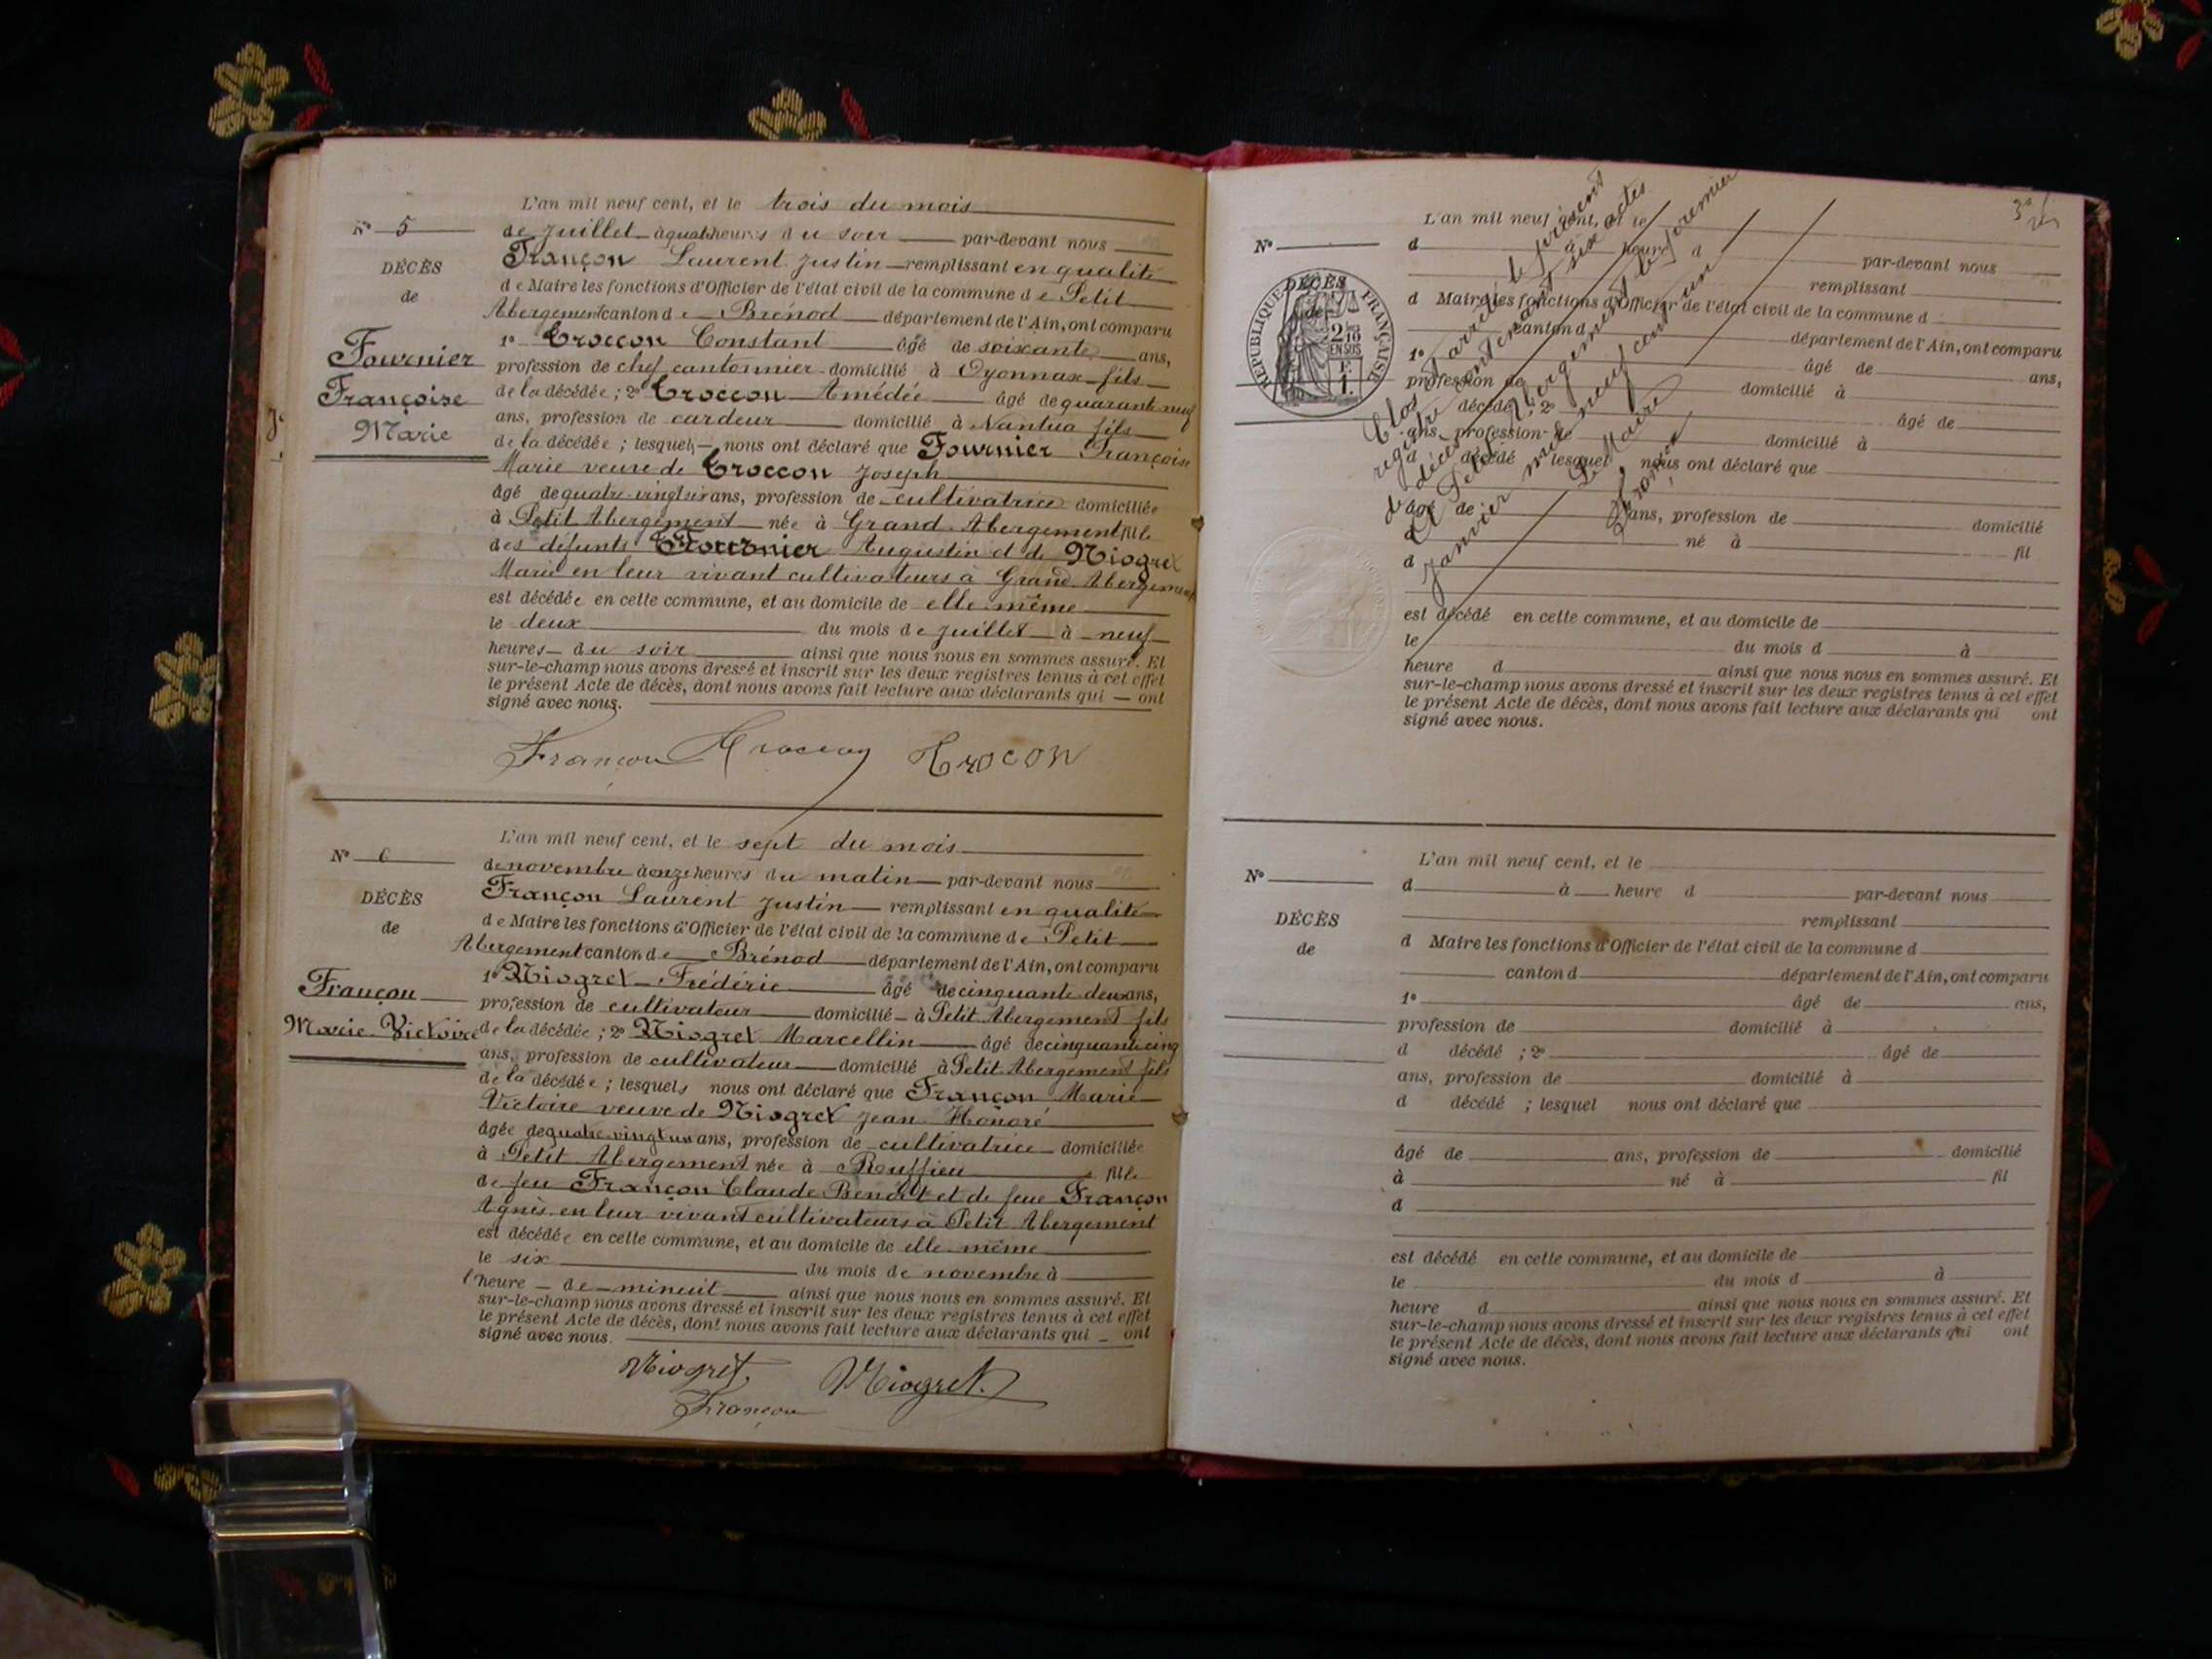 L'an mil neuf cent, et le trois du mois
N° 5
de Juillet à quatre heures du soir par-devant nous
DÉCÈS
de
Fournier
Françoise
Marie
Françon Laurent Justin remplissant en qualité
de Maire les fonctions d'Officier de l'état civil de la commune de Petit
Abergement canton de Brénod département de l'Ain, ont comparu
1° Croccon Constant âgé de soixante ans,
profession de chef cantonnier domicilié à Oyonnax fils
de la décédée ; 2° Croccon Amédée âgé de quarante neuf
ans, profession de cardeur domicilié à Nantua fils
de la décédée ; lesquels nous ont déclaré que Fournier Françoise
Marie veuve de Croccon Joseph
âgé de quatre-vingt ans, profession de cultivatrice domiciliée
à Petit Abergement née à Grand Abergement fille
des défunts Fournier Augustin et de Niogret
Marie en leur vivant cultivateurs à Grand Abergement
est décédée en cette commune, et au domicile de elle même
le deux du mois de Juillet à neuf
heures du soir ainsi que nous nous en sommes assuré. Et
sur-le-champ nous avons dressé et inscrit sur les deux registres tenus à cet effet
le présent Acte de décès, dont nous avons fait lecture aux déclarants qui ont
signé avec nous.
Françon Croccon Crocon
L'an mil neuf cent, et le sept du mois
N° 6
de novembre à onze heures du matin par-devant nous
DÉCÈS
de
Françon
Marie Victoire
Françon Laurent Justin remplissant en qualité
de Maire les fonctions d'Officier de l'état civil de la commune de Petit
Abergement canton de Brénod département de l'Ain, ont comparu
1° Niogret Frédéric âgé de cinquante deux ans,
profession de cultivateur domicilié à Petit Abergement fils
de la décédée ; 2° Niogret Marcellin âgé de cinquante cinq
ans, profession de cultivateur domicilié à Petit Abergement fils
de la décédée ; lesquels nous ont déclaré que Françon Marie
Victoire veuve de Niogret Jean Honoré
âgée de quatre vingt un ans, profession de cultivatrice domiciliée
à Petit Abergement née à Ruffieu fille
de feu Françon Claude Benoit et de feue Françon
Agnès en leur vivant cultivateurs à Petit Abergement
est décédée en cette commune, et au domicile de elle même
le six du mois de novembre à
l'heure de minuit ainsi que nous nous en sommes assuré. Et
sur-le-champ nous avons dressé et inscrit sur les deux registres tenus à cet effet
le présent Acte de décès, dont nous avons fait lecture aux déclarants qui ont
signé avec nous.
Niogret Niogret
Françon
L'an mil neuf cent, et le
N°
d à heure d par-devant nous
DÉCÈS
de
RÉPUBLIQUE FRANÇAISE
EN SUS
remplissant
d Maire les fonctions d'Officier de l'état civil de la commune d
canton d département de l'Ain, ont comparu
1° âgé de ans,
profession de domicilié à
d décédé ; 2° âgé de
ans, profession de domicilié à
d décédé lesquel nous ont déclaré que
âgé de ans, profession de domicilié
à né à fil
d
est décédé en cette commune, et au domicile de
le du mois d à
heure d ainsi que nous nous en sommes assuré. Et
sur-le-champ nous avons dressé et inscrit sur les deux registres tenus à cet effet
le présent Acte de décès, dont nous avons fait lecture aux déclarants qui ont
signé avec nous.
Clos et arrêté le présent
registre contenant six actes
de décès
A Petit Abergement le premier
Janvier mil neuf cent un
Le Maire
Françon
L'an mil neuf cent, et le
N°
d à heure d par-devant nous
DÉCÈS
de
remplissant
d Maire les fonctions d'Officier de l'état civil de la commune d
canton d département de l'Ain, ont comparu
1° âgé de ans,
profession de domicilié à
d décédé ; 2° âgé de
ans, profession de domicilié à
d décédé ; lesquel nous ont déclaré que
âgé de ans, profession de domicilié
à né à fil
d
est décédé en cette commune, et au domicile de
le du mois d à
heure d ainsi que nous nous en sommes assuré. Et
sur-le-champ nous avons dressé et inscrit sur les deux registres tenus à cet effet
le présent Acte de décès, dont nous avons fait lecture aux déclarants qui ont
signé avec nous.